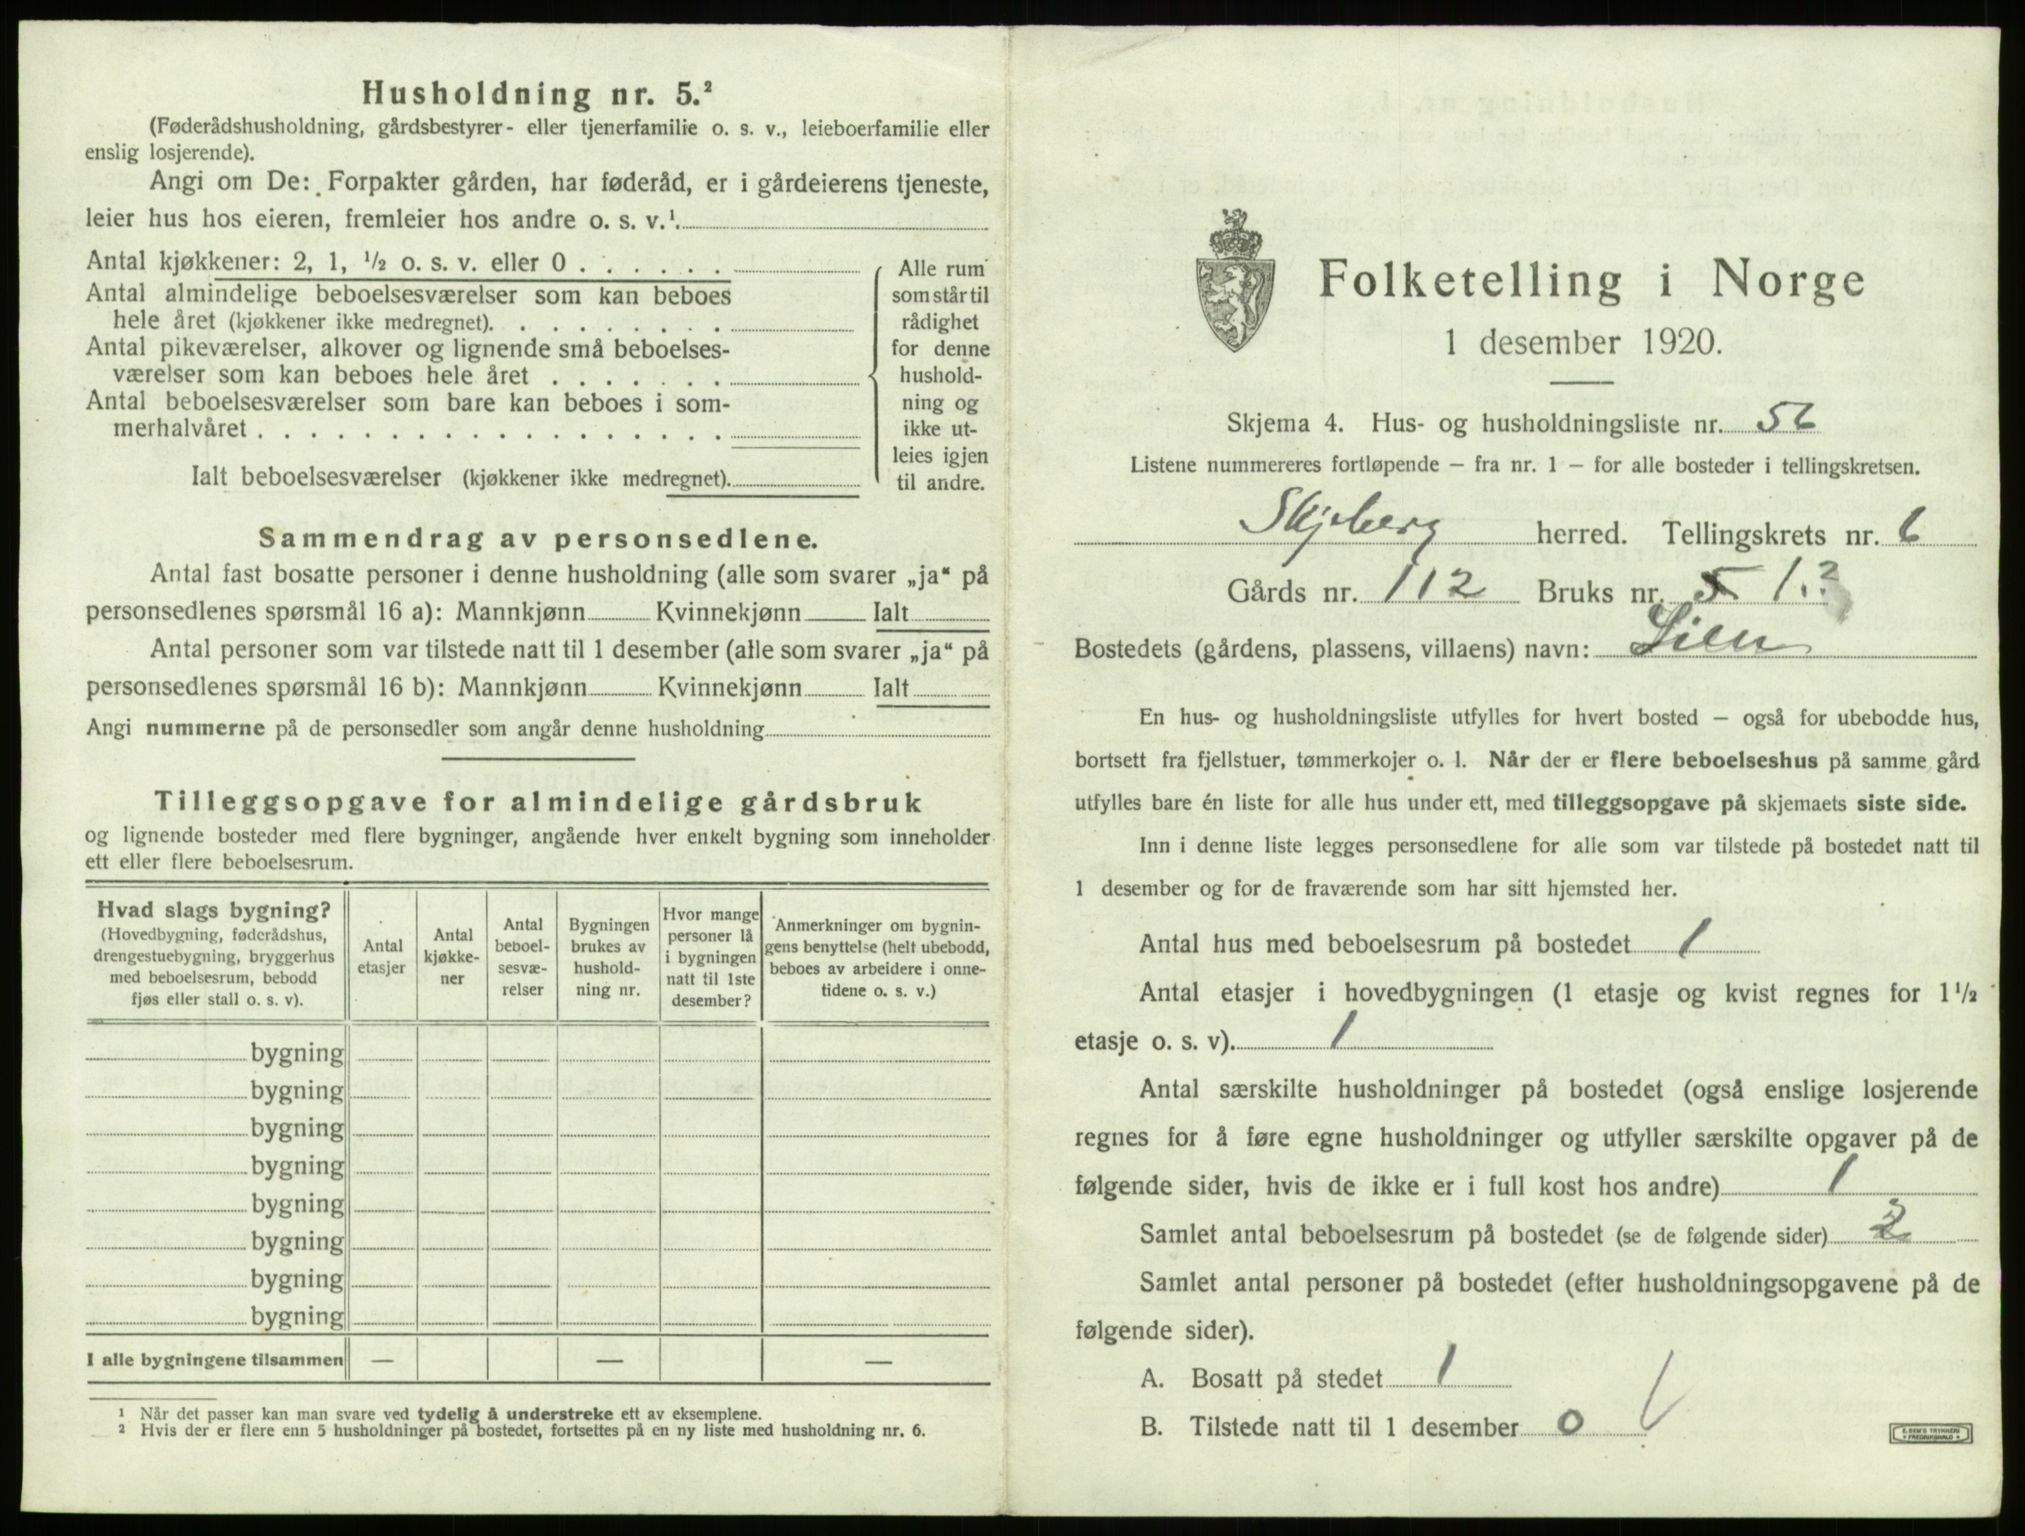 Husholdning nr. 5.²
(Føderådshusholdning, gårdsbestyrer- eller tjenerfamilie o. s. v., leieboerfamilie eller
enslig losjerende).
Angi om De: Forpakter gården, har føderåd, er i gårdeierens tjeneste,
leier hus hos eieren, fremleier hos andre o. s. v.¹
Antal kjøkkener: 2, 1, ½ o. s. v. eller 0 . . . . . .
Antal almindelige beboelsesværelser som kan beboes
hele året (kjøkkener ikke medregnet). . . . . . . . .
Antal pikeværelser, alkover og lignende små beboelses-
værelser som kan beboes hele året . . . . . . .
Antal beboelsesværelser som bare kan beboes i som-
merhalvåret . . . . . . . . . . . . . . . . . .
Ialt beboelsesværelser (kjøkkener ikke medregnet).
Alle rum
som står til
rådighet
for denne
hushold-
ning og
ikke ut-
leies igjen
til andre.
Sammendrag av personsedlene.
Antal fast bosatte personer i denne husholdning (alle som svarer „ja“ på
personsedlenes spørsmål 16 a): Mannkjønn Kvinnekjønn Ialt
Antal personer som var tilstede natt til 1 desember (alle som svarer „ja“ på
personsedlenes spørsmål 16 b): Mannkjønn Kvinnekjønn Ialt
Angi nummerne på de personsedler som angår denne husholdning
Tilleggsopgave for almindelige gårdsbruk
og lignende bosteder med flere bygninger, angående hver enkelt bygning som inneholder
ett eller flere beboelsesrum.
Hvad slags bygning?
(Hovedbygning, føderådshus,
drengestuebygning, bryggerhus
med beboelsesrum, bebodd
fjøs eller stall o. s. v).
Antal
etasjer
Antal
kjøkke-
ner
Antal
beboel-
sesvæ-
relser
Bygningen
brukes av
hushold-
ning nr.
Hvor mange
personer lå
i bygningen
natt til 1ste
desember?
Anmerkninger om bygnin-
gens benyttelse (helt ubebodd,
beboes av arbeidere i onne-
tidene o. s. v.)
bygning
bygning
bygning
bygning
bygning
bygning
bygning
bygning
I alle bygningene tilsammen — — —
¹ Når det passer kan man svare ved tydelig å understreke ett av eksemplene.
² Hvis der er flere enn 5 husholdninger på bostedet, fortsettes på en ny liste med husholdning nr. 6.
Folketelling i Norge
1 desember 1920.
Skjema 4. Hus- og husholdningsliste nr. 56
Listene nummereres fortløpende – fra nr. 1 – for alle bosteder i tellingskretsen.
Skjeberg herred. Tellingskrets nr. 6
Gårds nr. 112 Bruks nr. 5 1.?
Bostedets (gårdens, plassens, villaens) navn: Lien
En hus- og husholdningsliste utfylles for hvert bosted – også for ubebodde hus,
bortsett fra fjellstuer, tømmerkojer o. l. Når der er flere beboelseshus på samme gård
utfylles bare én liste for alle hus under ett, med tilleggsopgave på skjemaets siste side.
Inn i denne liste legges personsedlene for alle som var tilstede på bostedet natt til
1 desember og for de fraværende som har sitt hjemsted her.
Antal hus med beboelsesrum på bostedet 1
Antal etasjer i hovedbygningen (1 etasje og kvist regnes for 1½
etasje o. s. v). 1
Antal særskilte husholdninger på bostedet (også enslige losjerende
regnes for å føre egne husholdninger og utfyller særskilte opgaver på de
følgende sider, hvis de ikke er i full kost hos andre) 1
Samlet antal beboelsesrum på bostedet (se de følgende sider) 2
Samlet antal personer på bostedet (efter husholdningsopgavene på de
følgende sider).
A. Bosatt på stedet 1
B. Tilstede natt til 1 desember 0
E. SEM'S TRYKKERI
• FREDRIKSHALD •